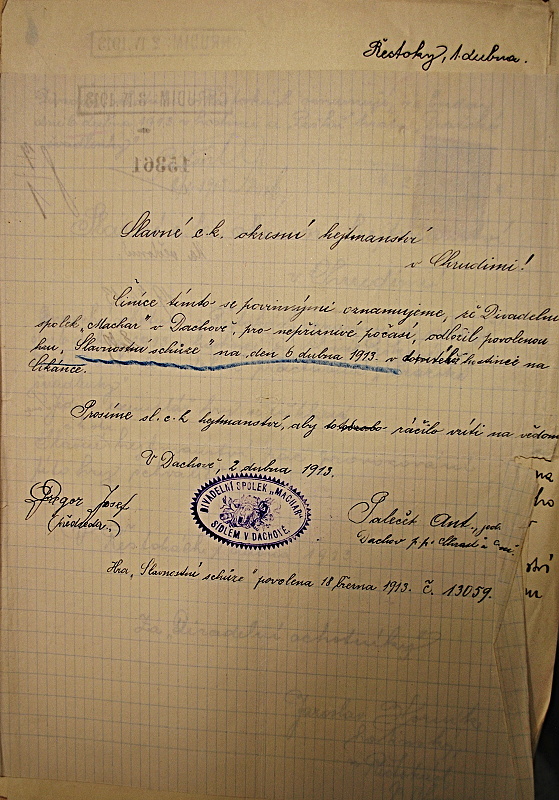 Řestoky, 1. dubna.
Slavné c.k. okresní hejtmanství
v Chrudimi!
Činíce tímto se povinnými oznamujeme, že Divadelní
spolek „Machar" v Dachově, pro nepříznivé počasí, odložil povolenou
hru „Slavnostní schůze" na den 6 dubna 1913. v hostinci na
Cikánce.
Prosíme sl. c.k. hejtmanství, aby toto ráčilo vzíti na vědomí
V Dachově, 2 dubna 1913.
DIVADELNÍ SPOLEK „MACHAR"
SÍDLEM V DACHOVĚ.
Josef
předseda.
Paleček Ant., jedn.
Dachov p. p.
Hra „Slavnostní schůze" povolena 18 března 1913. č. 13059.